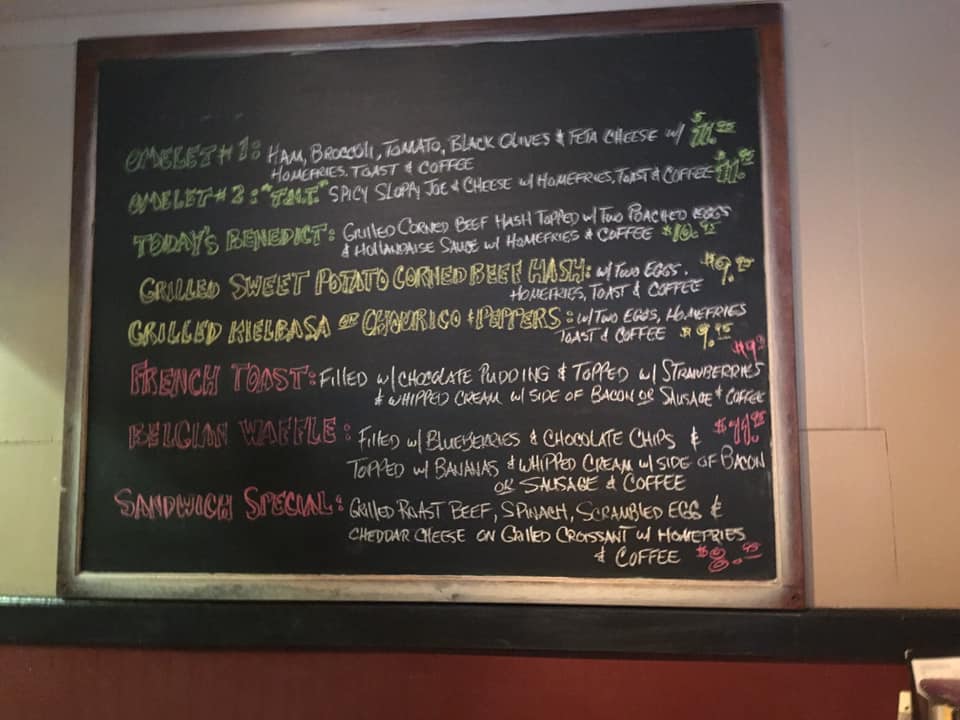 OMELET #1: HAM, BROCCOLI, TOMATO, BLACK OLIVES & FETA CHEESE W/ $11.95
HOMEFRIES, TOAST & COFFEE
OMELET #2: "T.N.T." SPICY SLOPPY JOE & CHEESE W/ HOMEFRIES, TOAST & COFFEE $11.
TODAY'S BENEDICT: GRILLED CORNED BEEF HASH TOPPED W/ TWO POACHED EGGS
& HOLLANDAISE SAUCE W/ HOMEFRIES & COFFEE $10.95
GRILLED SWEET POTATO CORNED BEEF HASH: W/ TWO EGGS. $9.95
HOMEFRIES, TOAST & COFFEE
GRILLED KIELBASA OR CHOURICO & PEPPERS: W/ TWO EGGS, HOMEFRIES
TOAST & COFFEE $9.95
FRENCH TOAST: FILLED W/ CHOCOLATE PUDDING & TOPPED W/ STRAWBERRIES
& WHIPPED CREAM W/ SIDE OF BACON OR SAUSAGE & COFFEE
BELGIAN WAFFLE: FILLED W/ BLUEBERRIES & CHOCOLATE CHIPS & $11.95
TOPPED W/ BANANAS & WHIPPED CREAM W/ SIDE OF BACON
OR SAUSAGE & COFFEE
SANDWICH SPECIAL: GRILLED ROAST BEEF, SPINACH, SCRAMBLED EGG &
CHEDDAR CHEESE ON GRILLED CROISSANT W/ HOMEFRIES
& COFFEE $8.95